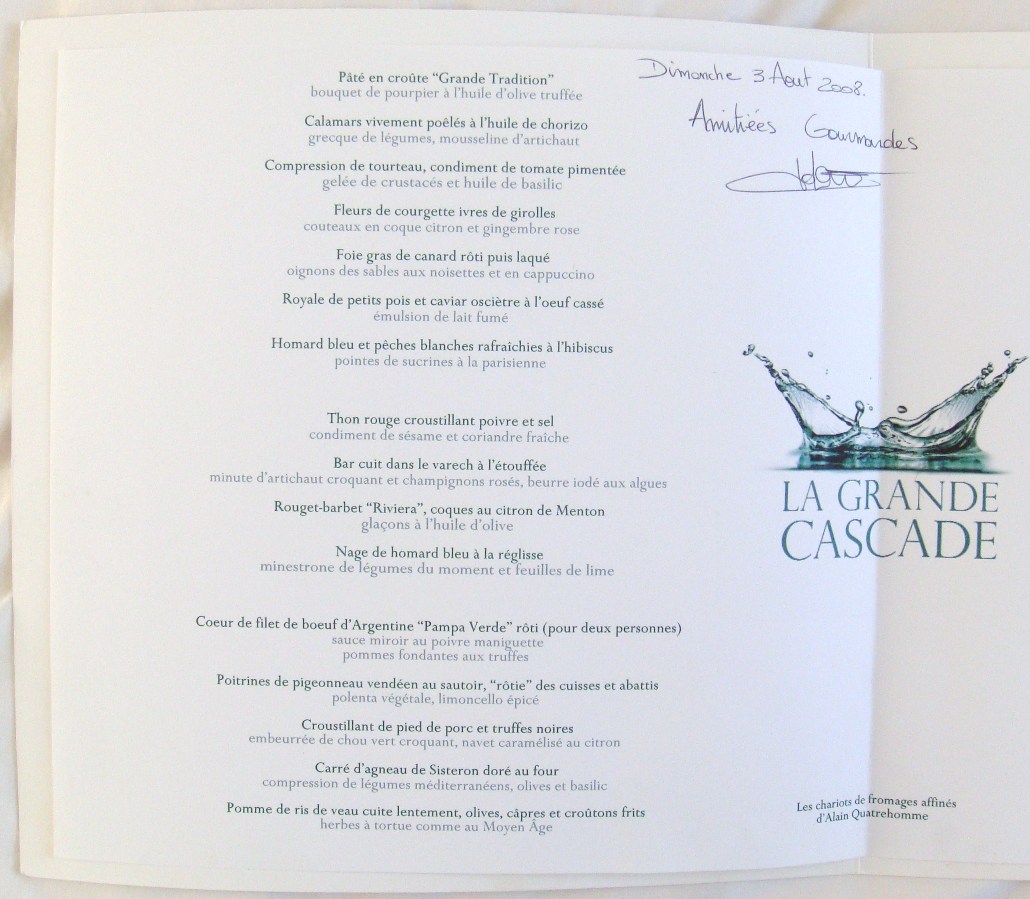 Pâté en croûte “Grande Tradition”
bouquet de pourpier à l’huile d’olive truffée
Calamars vivement poêlés à l’huile de chorizo
grecque de légumes, mousseline d’artichaut
Compression de tourteau, condiment de tomate pimentée
gelée de crustacés et huile de basilic
Fleurs de courgette ivres de girolles
couteaux en coque citron et gingembre rose
Foie gras de canard rôti puis laqué
oignons des sables aux noisettes et en cappuccino
Royale de petits pois et caviar osciètre à l’oeuf cassé
émulsion de lait fumé
Homard bleu et pêches blanches rafraîchies à l’hibiscus
pointes de sucrines à la parisienne
Thon rouge croustillant poivre et sel
condiment de sésame et coriandre fraîche
Bar cuit dans le varech à l’étouffée
minute d’artichaut croquant et champignons rosés, beurre iodé aux algues
Rouget-barbet “Riviera”, coques au citron de Menton
glaçons à l’huile d’olive
Nage de homard bleu à la réglisse
minestrone de légumes du moment et feuilles de lime
Coeur de filet de boeuf d’Argentine “Pampa Verde” rôti (pour deux personnes)
sauce miroir au poivre maniguette
pommes fondantes aux truffes
Poitrines de pigeonneau vendéen au sautoir, “rôtie” des cuisses et abattis
polenta végétale, limoncello épicé
Croustillant de pied de porc et truffes noires
embeurrée de chou vert croquant, navet caramélisé au citron
Carré d’agneau de Sisteron doré au four
compression de légumes méditerranéens, olives et basilic
Pomme de ris de veau cuite lentement, olives, câpres et croûtons frits
herbes à tortue comme au Moyen Âge
Dimanche 3 Aout 2008.
Amitiées Gourmandes
LA GRANDE
CASCADE
Les chariots de fromages affinés
d’Alain Quatrehomme